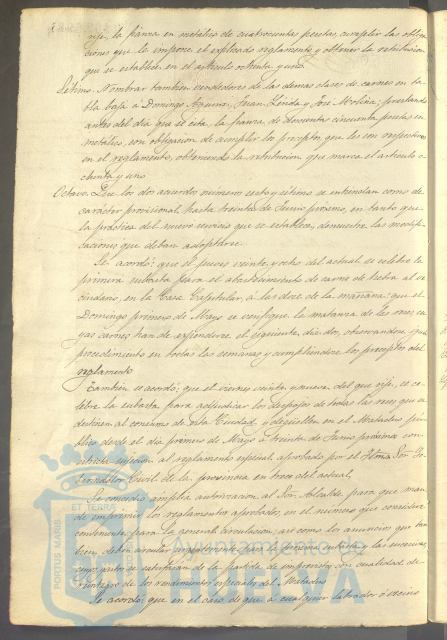 rije, la fianza en metálico de cuatrocientas pesetas, cumplir las obliga-
ciones que le impone el explicado reglamento y obtener la retribucion
que se establece en el artículo ochenta y uno.
Sétimo. Nombrar tambien vendedores de las demas clases de carnes en ta-
bla baja a Domingo Juan y José Molina; prestando
antes del dia que se cita la fianza de doscientas cincuenta pesetas en
metálico, con obligacion de cumplir los preceptos que les son respectivos
en el reglamento, obteniendo la retribucion que marca el artículo o-
chenta y uno
Octavo. Que los dos acuerdos números sesto y sétimo se entiendan como de
carácter provisional, hasta treinta de Junio próximo, en tanto que
la práctica del nuevo servicio que se establece, demuestre las modifi-
caciones que deban adoptarse.
Se acordó: que el jueves veinte y ocho del actual se celebre la
primera subasta para el abastecimiento de carne de hebra al ve-
cindario, en la Casa Capitular, a las doce de la mañana: que el
Domingo primero de Mayo se verifique la matanza de las reses cu-
yas carnes han de expenderse el siguiente dia dos, observandose igual
procedimiento en todas las semanas y cumpliendose los preceptos del
reglamento.
Tambien se acordó: que el viernes veinte y nueve del que rije, se ce-
lebre la subasta para adjudicar los despojos de todas las reses que se
destinen al consumo de esta Ciudad, y degüellen en el Matadero pú-
blico desde el dia primero de Mayo a treinta de Junio próximo con
estricta sujecion al reglamento especial aprobado por el Iltmo Sor Go-
bernador Civil de la provincia en trece del actual.
Se concedió amplia autorizacion al Sor Alcalde para que man-
de imprimir los reglamentos aprobados, en el número que considere
conveniente para la general circulacion, asi como los anuncios que tam-
bien deben circular para la primera subasta y las sucesivas,
cuyo gasto se satisfará de la partida de imprevistos con cualidad de
reintegro de los rendimientos especiales del Matadero
Se acordó: que en el caso de que a cualquier labrador ó vecino
PORTUS MARIS
ET TERRA
Ayuntamiento de
HUELVA